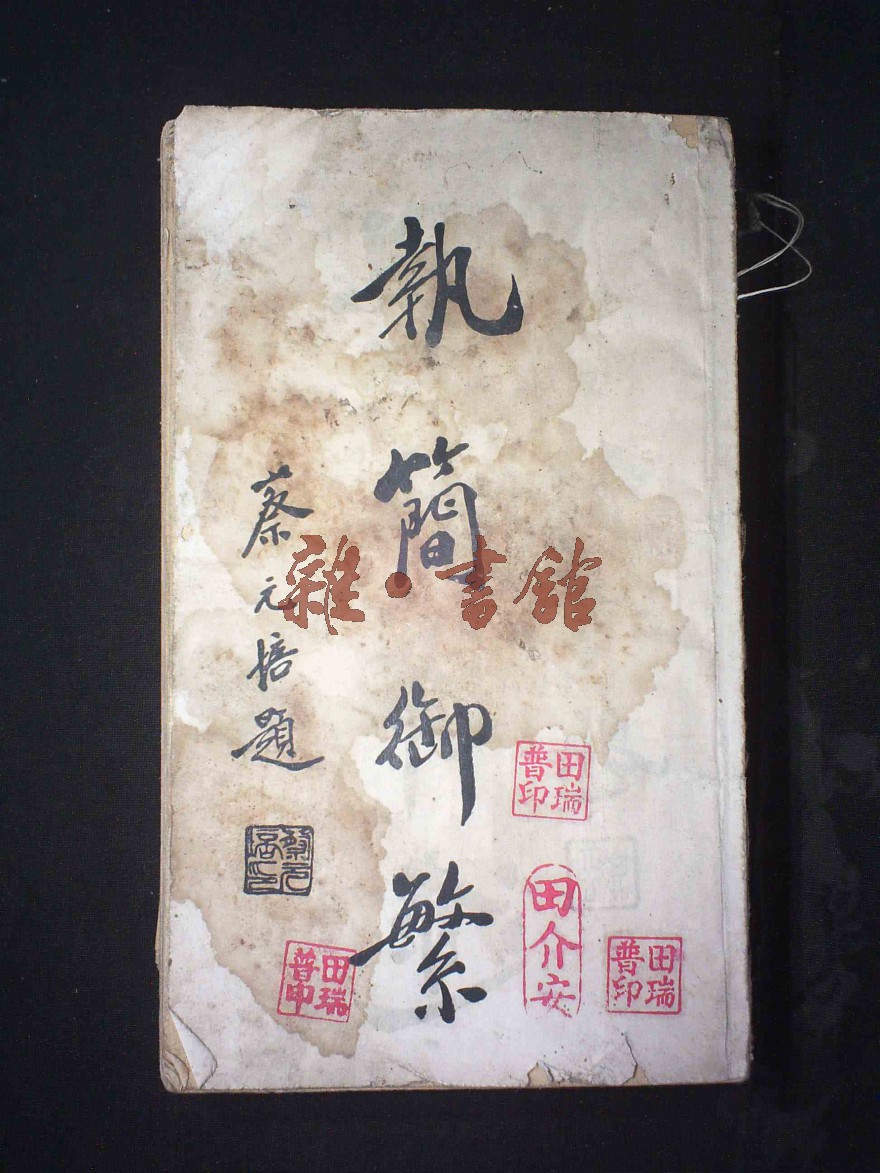 執簡御繁
蔡元培題
蔡元培印
田瑞普印
田介安
田瑞普印
田瑞普印
雜·書館